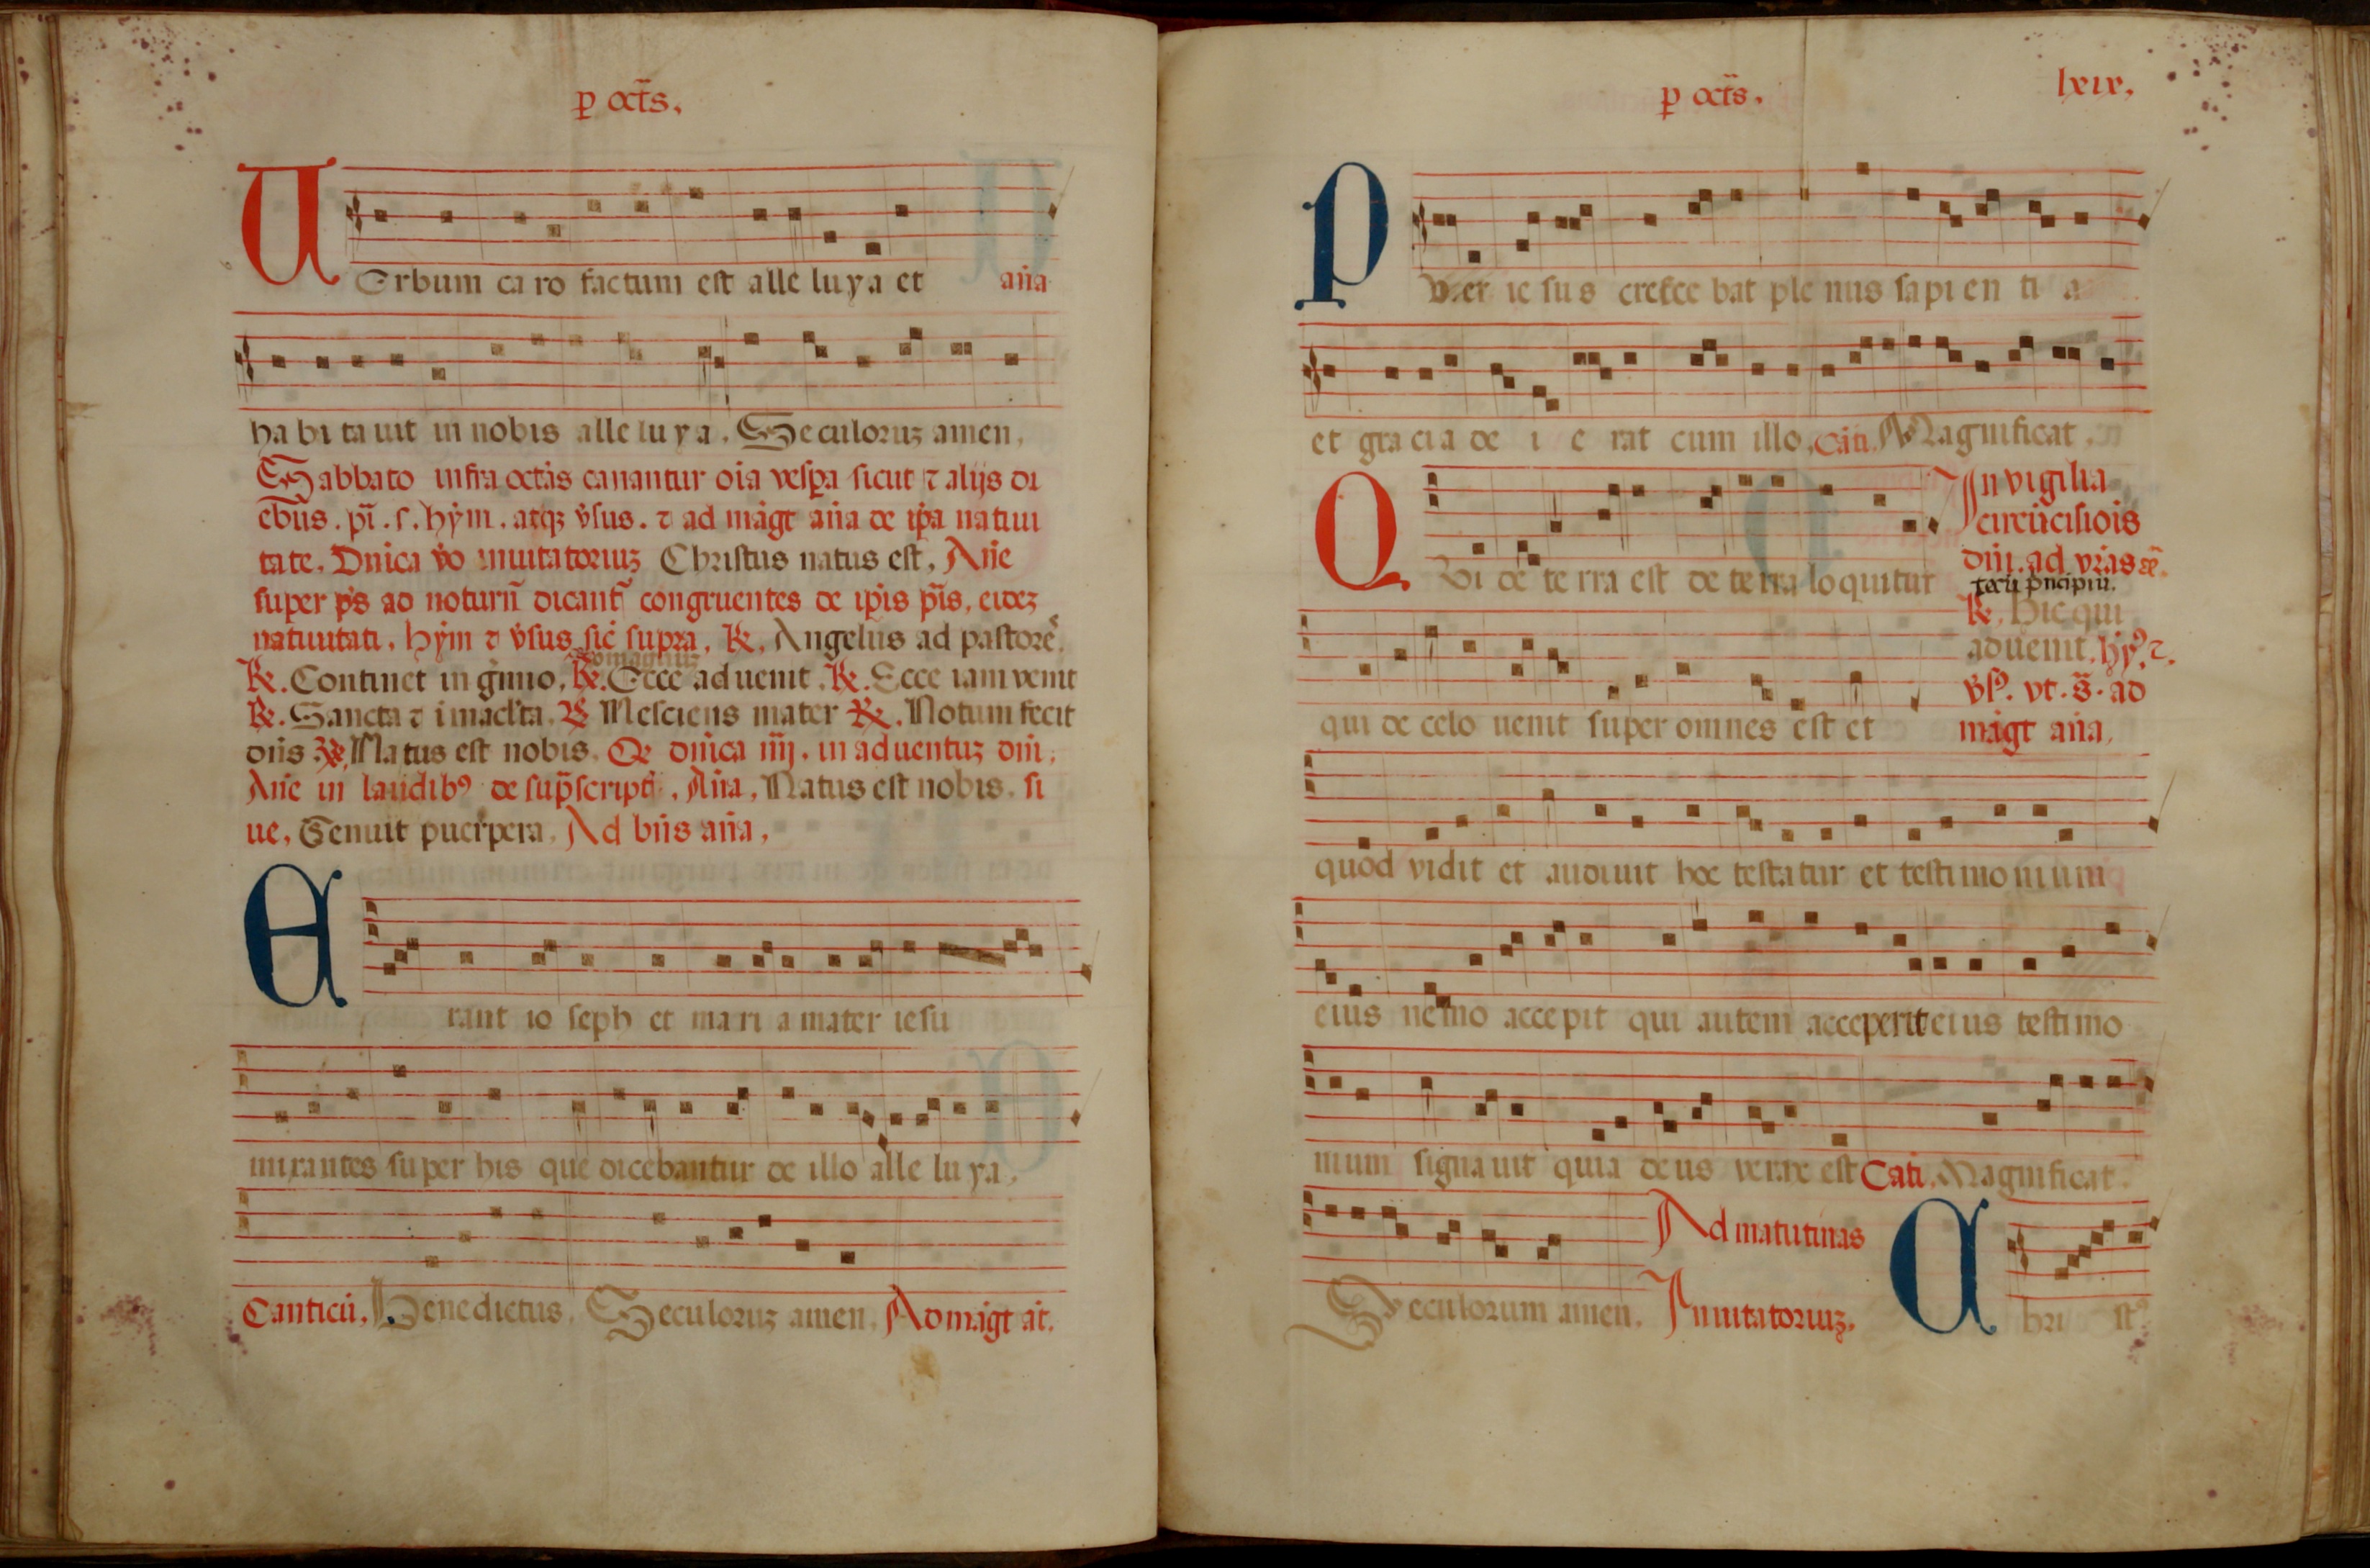 p oct̃s.
UErbum ca ro factum est alle luya et añа
ha bi ta uit in nobis alle lu ya. Seculoruz amen.
Sabbato infra octãs canantur oĩa vesp̃a sicut ⁊ alijs di
ebus. pĩ. s. hym̃. atqz v̉sus. ⁊ ad mag̃t añа de ip̃a natiui
tate. Dñica v̉o inuitatoriuz Christus natus est. Añe
super p̃s ad noturñ dicant̃ congruentes de ip̃is p̃is. eidez
natiuitati. hym̃ ⁊ v̉sus sic̃ supra. R̷. Angelus ad pastorẽ.
R̷. Continet in g̃mio. R̷. Ecce aduenit. R̷. Ecce iam venit
R̷. Sancta ⁊ imacl̃ta. R̷ Nesciens mater R̷. Notum fecit
dñs. R̷. Natus est nobis. R̷ dñica iiij. in aduentuz dñi.
Añe in laudibꝰ de sup̃script̃. Añа. Natus est nobis. si
ue, Genuit puerpera. Ad bñs añа.
Erant io seph et mari a mater iesu
mirantes super his que dicebantur de illo alle lu ya.
Canticũ. Benedictus. Seculoruz amen. Ad mag̃t añ.
p oct̃s. lxix.
Pver ie sus cresce bat ple nus sapi en ti a
et gra cia de i e rat cum illo. Cãti. Magnificat.
QVi de te rra est de te rra loquitur
In vigilia
circũcisiõis
dñi. ad vr̃as
tecũ p̃ncipiũ.
R̷. Hic qui
qui de celo uenit super omnes est et
aduenit. hyꝰ. ⁊.
v̉sꝰ. vt. s̃. ad
mag̃t añа.
quod vidit et audiuit hoc testatur et testi mo nium
eius nemo accepit qui autem acceperit eius testimo
nium signauit quia deus verax est Cãti. Magnificat.
Seculorum amen. Ad matutinas
Inuitatoriuz. Chri stꝰ